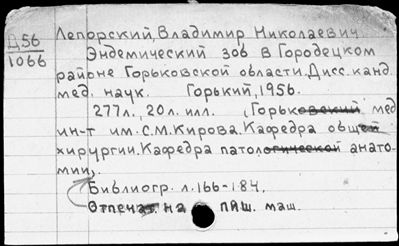 Д56
1066
Лепорский, Владимир Николаевич
Эндемический зоб в Городецком
районе Горьковской области. Дисс. канд.
мед. наук. Горький, 1956.
277л., 20л. илл. (Горьковский мед.
ин-т им. С.М. Кирова. Кафедра общей
хирургии. Кафедра патологической анато-
мии).
Библиогр. л. 166-184.
Отпечат. на пиш. маш.